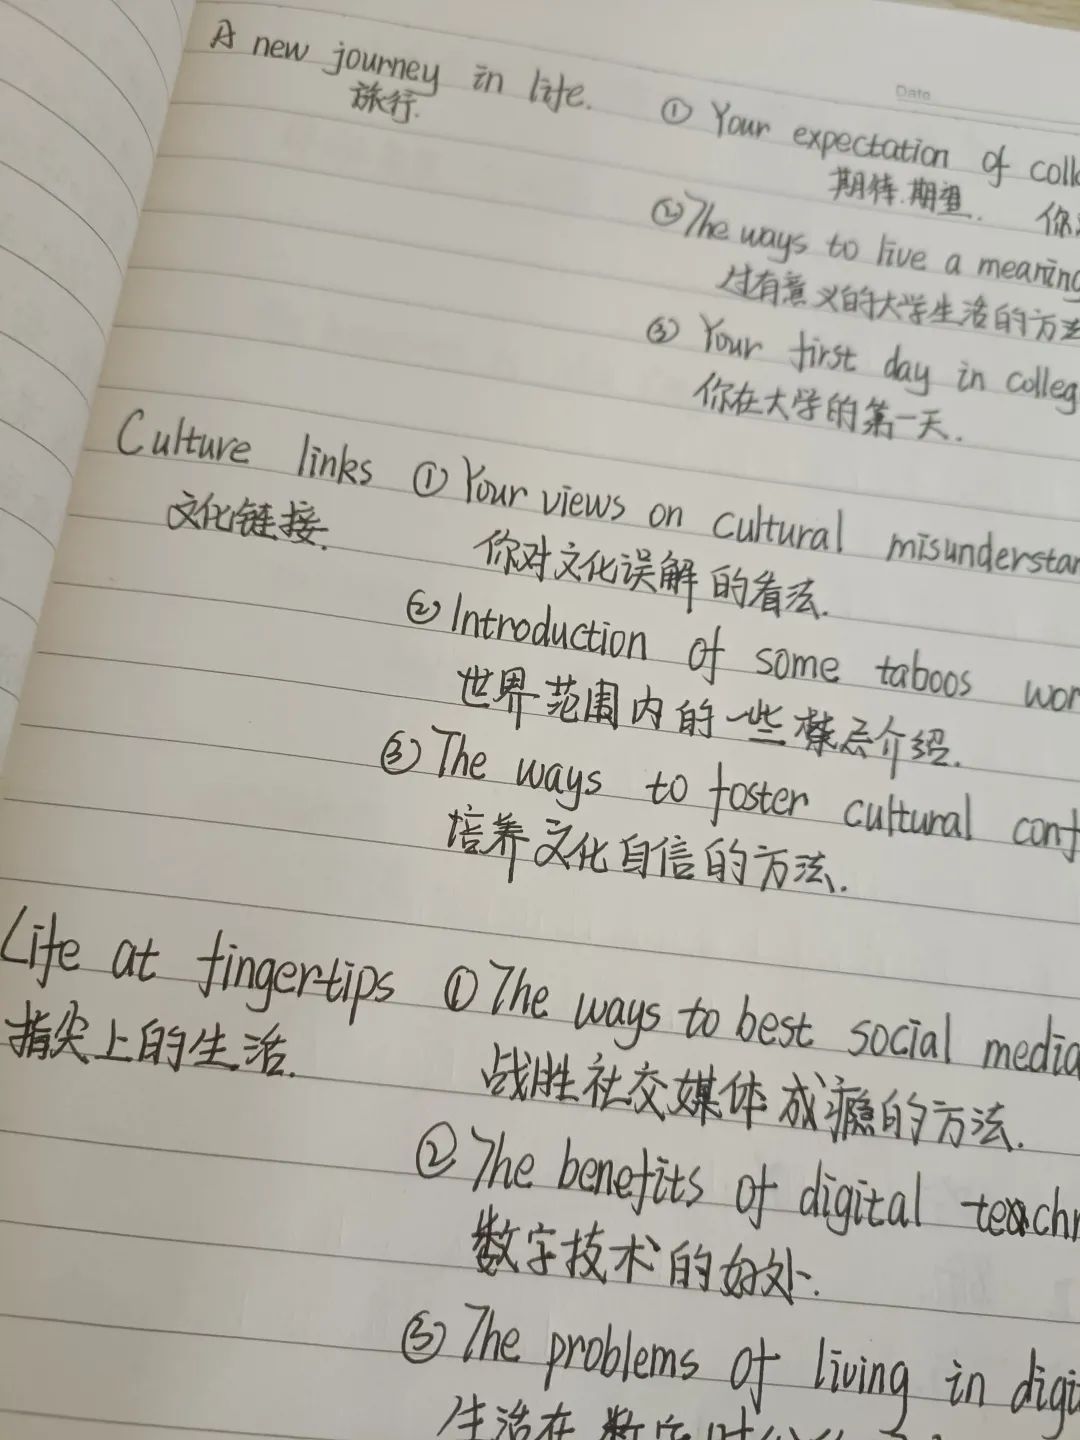 Date
A new journey in life.
旅行.
① Your expectation of
期待.期望. 你
② The ways to live a
过有意义的大学生活的方法
③ Your first day in
你在大学的第一天.
Culture links
文化链接.
① Your views on cultural
你对文化误解的看法.
② Introduction of some taboos
世界范围内的一些禁忌介绍.
③ The ways to foster cultural
培养文化自信的方法.
Life at fingertips
指尖上的生活.
① The ways to best social media
战胜社交媒体成瘾的方法.
② The benefits of digital
数字技术的好处.
③ The problems of living in
生活在数字时代